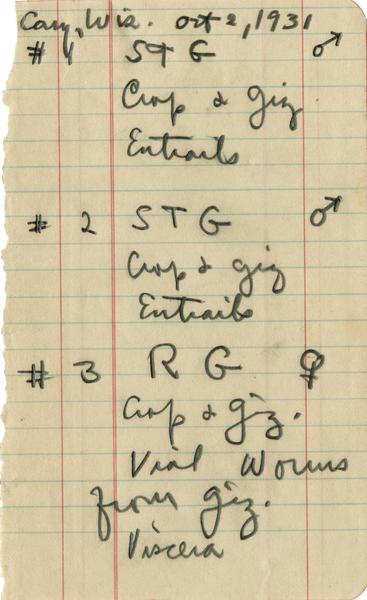 Cary, Wis. Oct 2, 1931
# 1 STG ♂
Crop & Giz
Entrails
# 2 STG ♂
Crop & giz
Entrails
# 3 RG ♀
Crop & giz.
Vial Worms
from giz.
Viscera